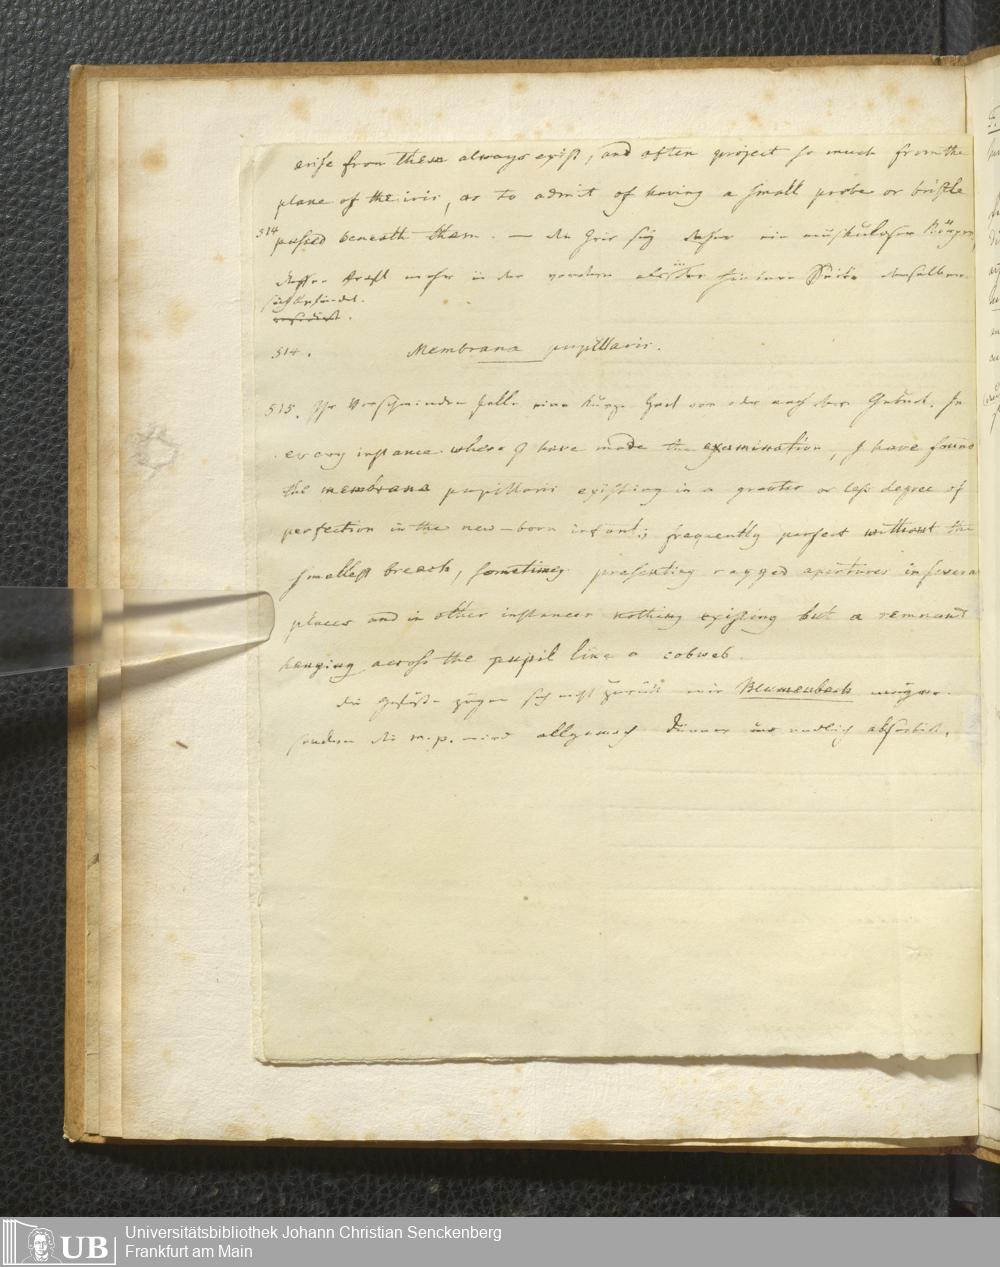 arise from them always exist, and often project so much from the
plane of the iris, as to admit of having a small probe or bristle
514 passed beneath them. — die Iris sey daher ein muskuloser Körper,
dessen Kraft mehr in der vordern als in der hintern Seite derselben
sich befindet.
514. Membrana pupillaris.
515. Ihr Verschwinden falle eine kurze Zeit vor oder nach der Geburt. In
every instance where I have made the examination, I have found
the membrana pupillaris existing in a greater or less degree of
perfection in the new-born infant; frequently perfect without the
smallest breach, sometimes presenting ragged apertures in several
places and in other instances nothing existing but a remnant
hanging across the pupil like a cobweb.
die Gefäße zögen sich nicht zurück wie Blumenbach
sondern die m.p. wird allgemach dünner und endlich absorbirt.
Universitätsbibliothek Johann Christian Senckenberg
UB Frankfurt am Main